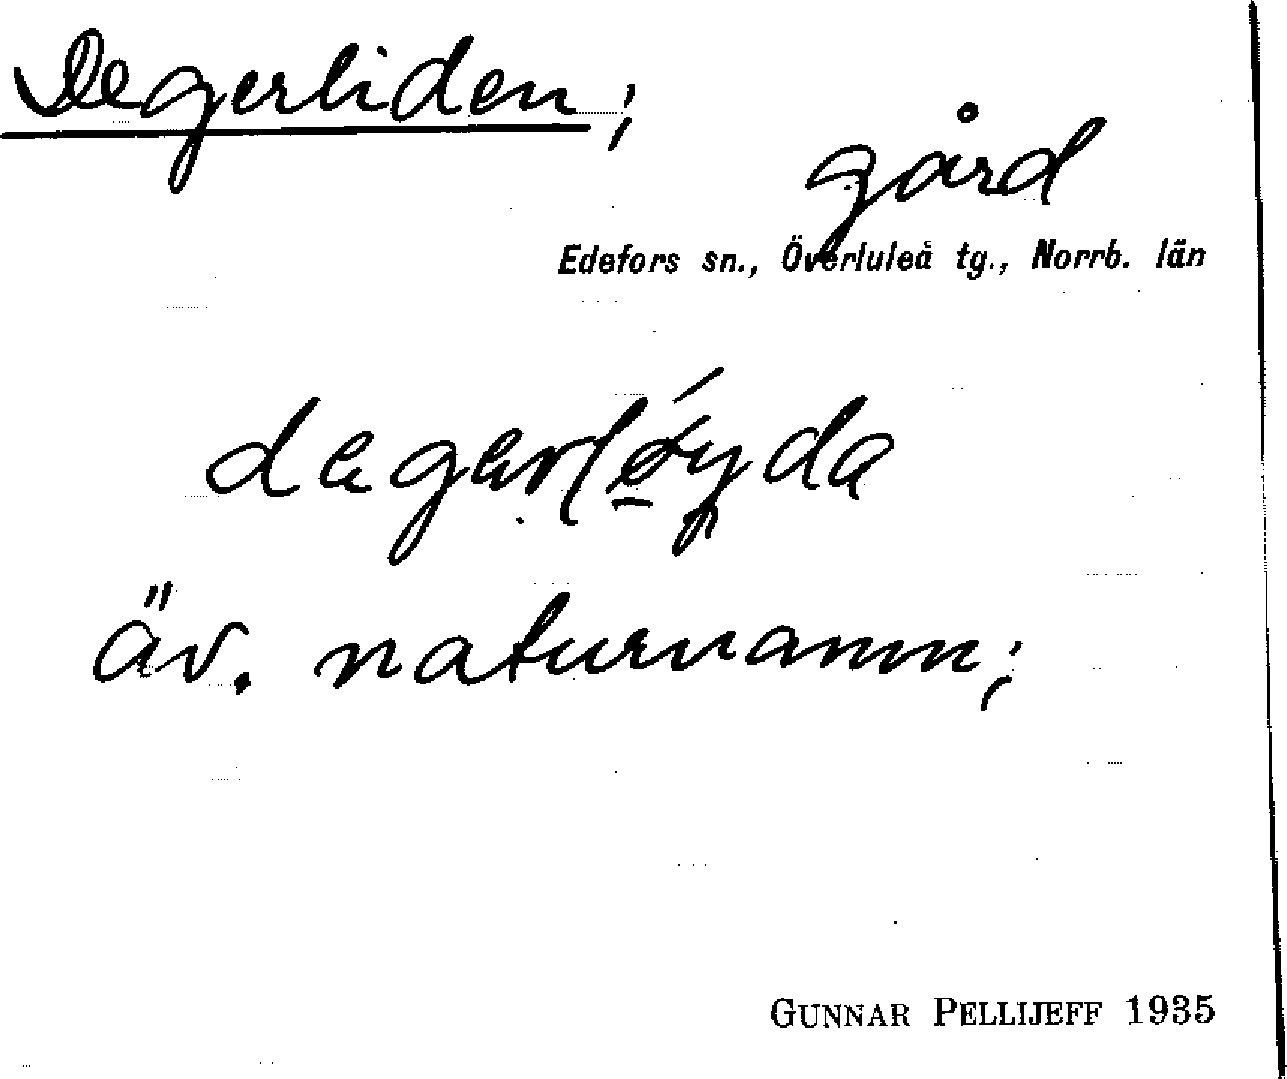 Degerliden;
gård
Edefors sn., Överluleå tg., Norrb. län
äv. naturnamn;
GUNNAR PELLIJEFF 1935